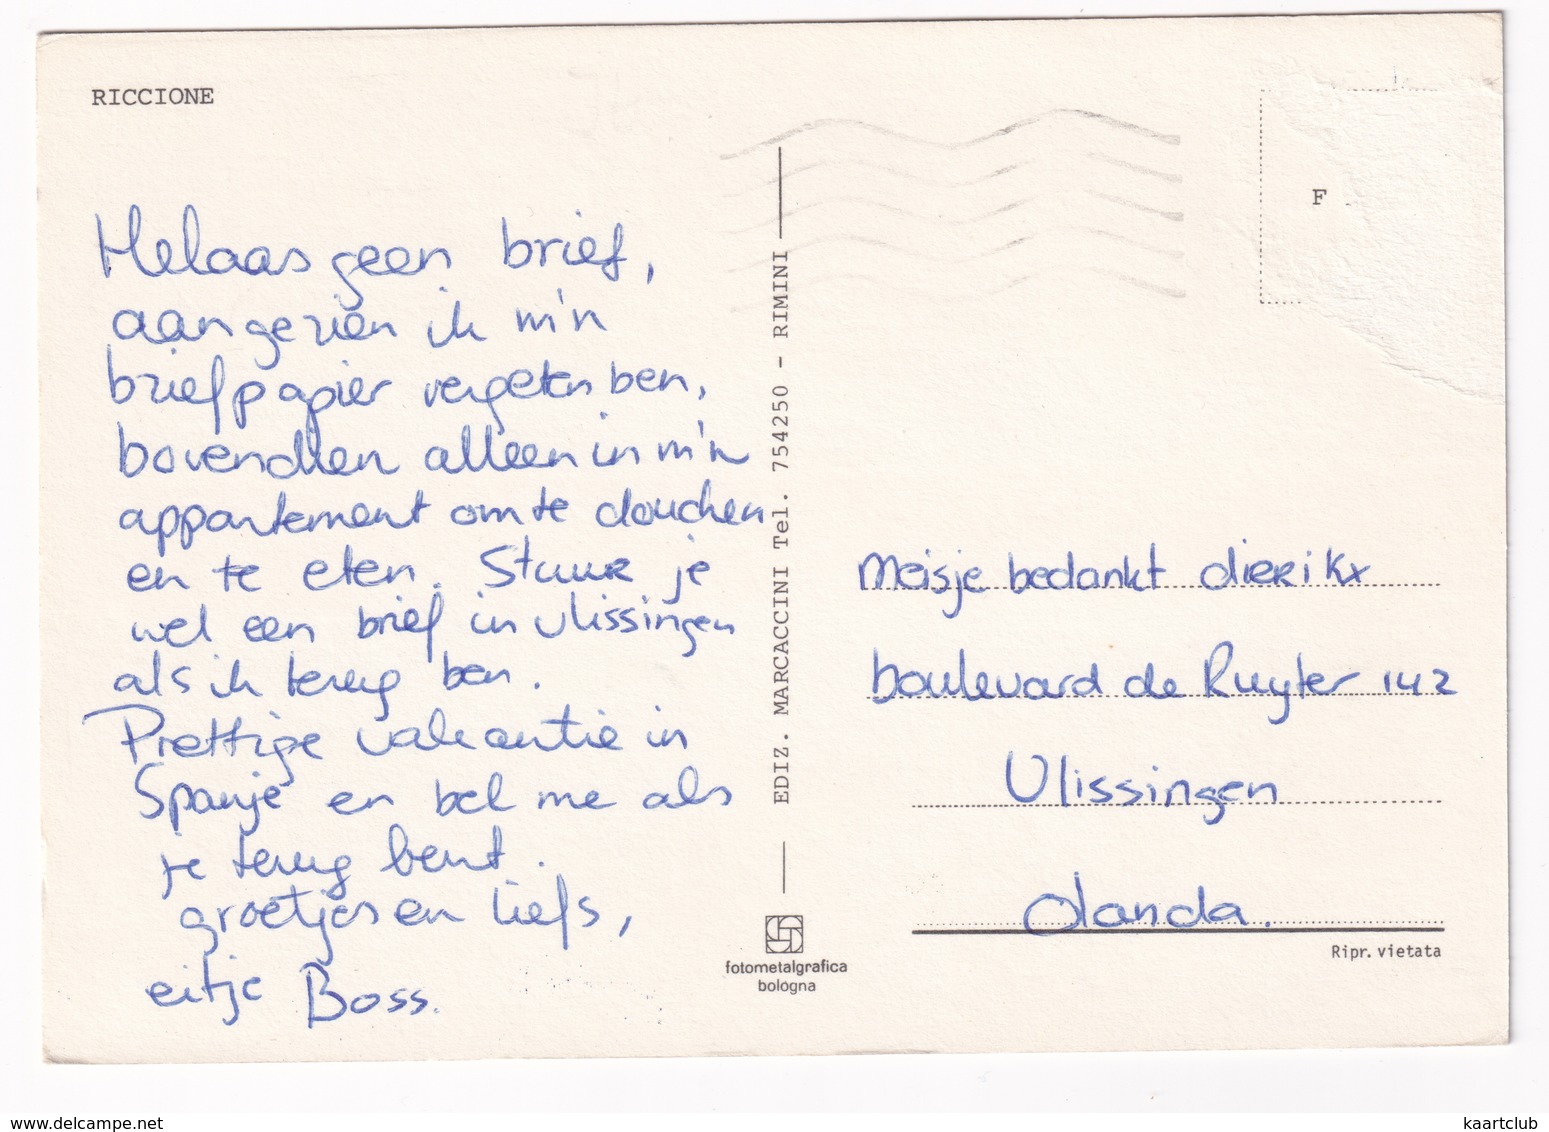 RICCIONE
F
Helaas geen brief,
aangezien ik m'n
briefpapier vergeten ben,
bovendien alleen in m'n
appartement om te douchen
en te eten. Stuur je
wel een brief in Vlissingen
als ik terug ben.
Prettige vakantie in
Spanje en bel me als
je terug bent.
groetjes en liefs,
eitje Boss.
EDIZ. MARCACCINI Tel. 754250 - RIMINI
fotometalgrafica
bologna
Meisje bedankt dierikx
boulevard de Ruyter 142
Vlissingen
Olanda.
Ripr. vietata
www.delcampe.net
kaartclub